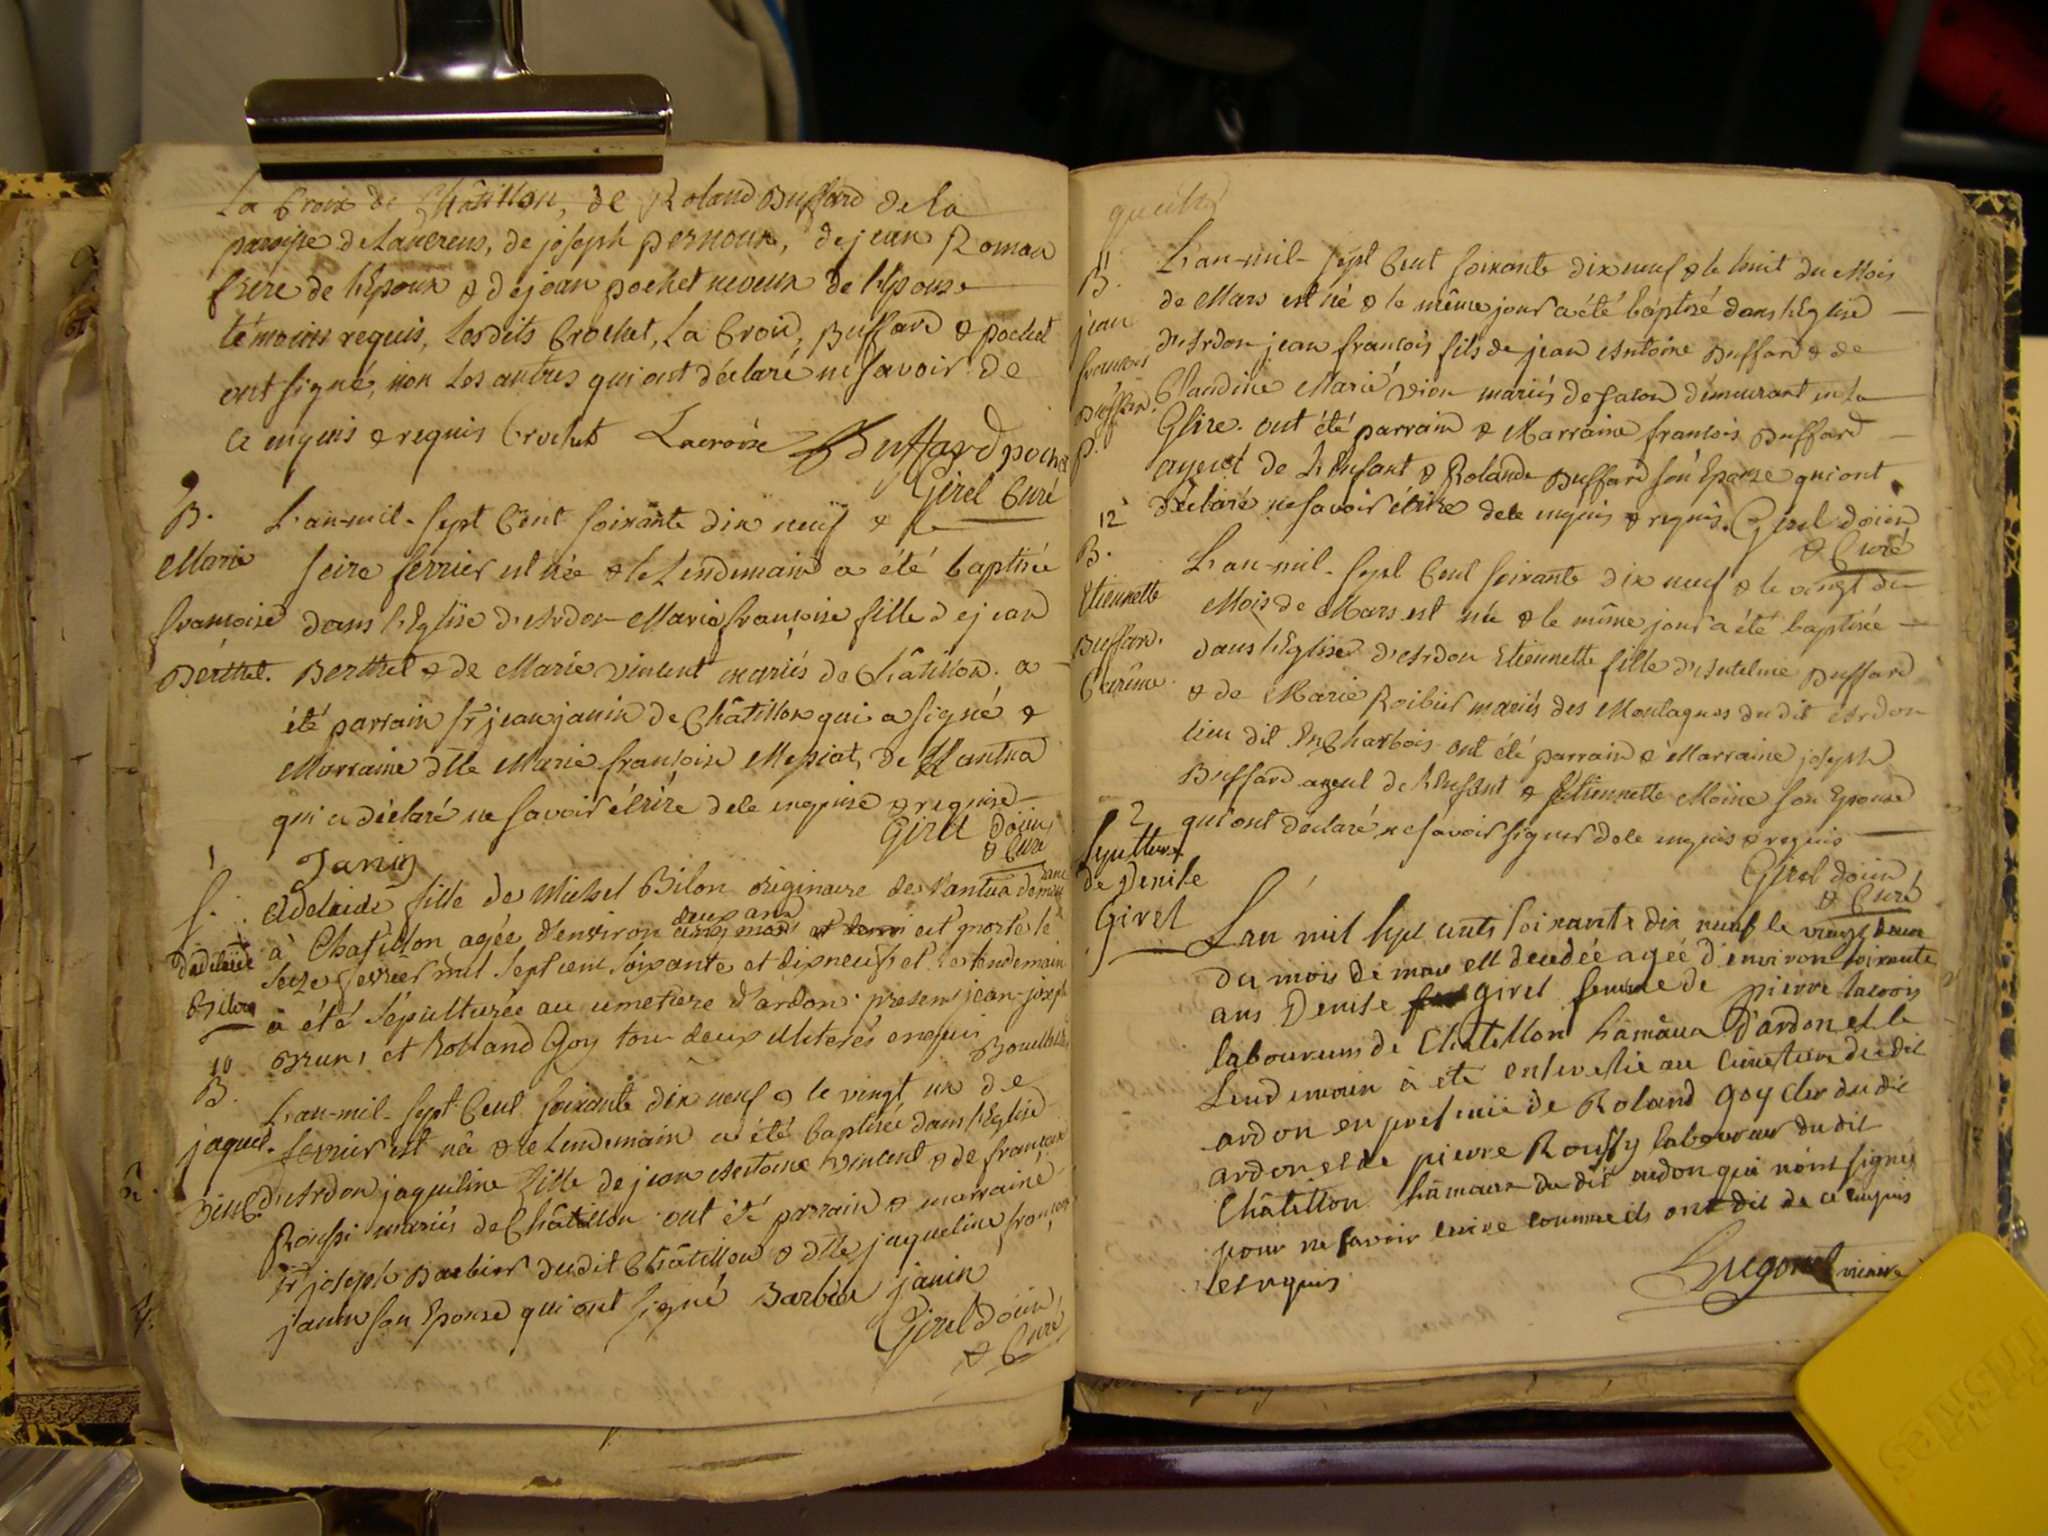 La Croix de Châtillon, de Roland Buffard de la
paroisse de Lancrens, de joseph pernoux, de jean Roman
frere de l'Epoux & de jean pochet neveux de l'Epouse
témoins requis, lesdits Crochet, La Croix, Buffard & pochet
ont signé, non les autres qui ont déclaré ne savoir de
ce enquis & requis Crochet Lacroix Buffard pochet
Girel Curé
B.
Marie
françoise
Berthet.
L'an-mil-sept Cent soixante dix neuf & le
seize ferrier est née & le Lendemain a été baptisée
dans l'Eglise d'Ardon Marie françoise fille de jean
Berthet & de Marie vincent mariés de Châtillon. a
été parrain sr jean janin de Châtillon qui a signé &
Marraine dlle Marie françoise Messiat, de Nantua
qui a déclaré ne savoir écrire de le enquise & requise
Girel doien
& Curé
Janin
1
S.
d'adelaide
Bilon
Adelaide fille de Michel Bilon originaire de Nantua
à Chatillon agée d'environ deux ans est morte le
seize fevrier mil sept cent soixante et dix neuf, et le lendemain
a été sépulturée au cimetiere d'ardon presens jean-joseph
Brun, et Rolland Goy tous deux illiterés enquis
10
B.
jaquel.
vinc.
L'an-mil-sept Cent soixante dix neuf & le vingt un de
fevrier est née & le Lendemain a été baptisée dans l'Eglise
d'Ardon jaqueline fille de jean Antoine vincent & de françoise
Roussi mariés de Châtillon ont été parrain & marraine
sr joseph Barbier dudit Châtillon & dlle jaqueline françoise
janin son Epouse qui ont signé Barbier janin
Girel doien
& Curé
11
B.
jean
francois
Buffard.
L'an-mil-sept Cent soixante dix neuf & le huit du Mois
de Mars est né & le même jour a été baptisé dans l'Eglise
d'Ardon jean francois fils de jean Antoine Buffard & de
Claudine Marie vion mariés de facon demeurant en la
Glire. ont été parrain & Marraine francois Buffard
ayeul de l'Enfant & Rolande Buffard son Epouse qui ont
déclaré ne savoir écrire de le enquis & requis. Girel doien
& Curé
12
B.
Etiennette
Buffard.
L'an-mil-sept Cent soixante dix neuf & le vingt du
Mois de Mars est née & le même jour a été baptisée
dans l'Eglise d'Ardon Etiennette fille d'Antelme Buffard
& de Marie Roibier mariés des Montagnes du dit Ardon
lieu dit En Charbois ont été parrain & Marraine joseph
Buffard ayeul de l'Enfant & Etiennette Moine son Epouse
qui ont déclaré ne savoir signer de le enquis & requis
Girel doien
& Curé
2
Sepulture
de Denise
Girel
L'an mil sept cents soixante dix neuf le vingt deux
du mois de mars est décédée agée d'environ soixante
ans Denise Girel femme de pierre lacroix
laboureur de Chatillon hameau d'ardon et le
Lendemain à eté ensevelie au cimetiere du dit
ardon en presence de Roland Goy clerc du dit
ardon et de pierre Roussy laboureur du dit
Châtillon hameau du dit ardon qui n'ont signés
pour ne savoir ecrire comme ils ont dit de ce enquis
et requis
Hugonet vicaire